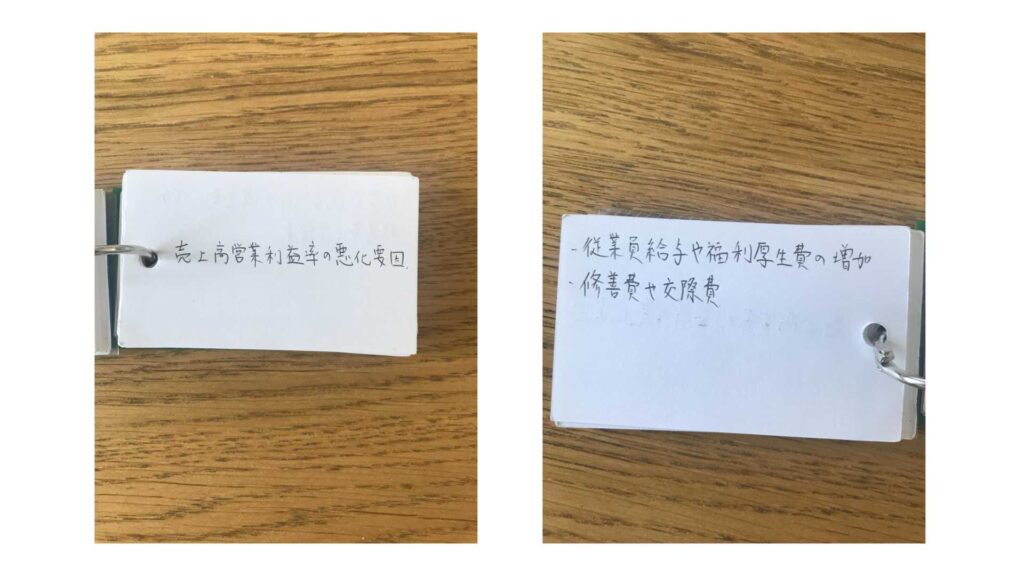 売上高営業利益率の悪化要因.
- 従業員給与や福利厚生費の増加
- 修善費や交際費